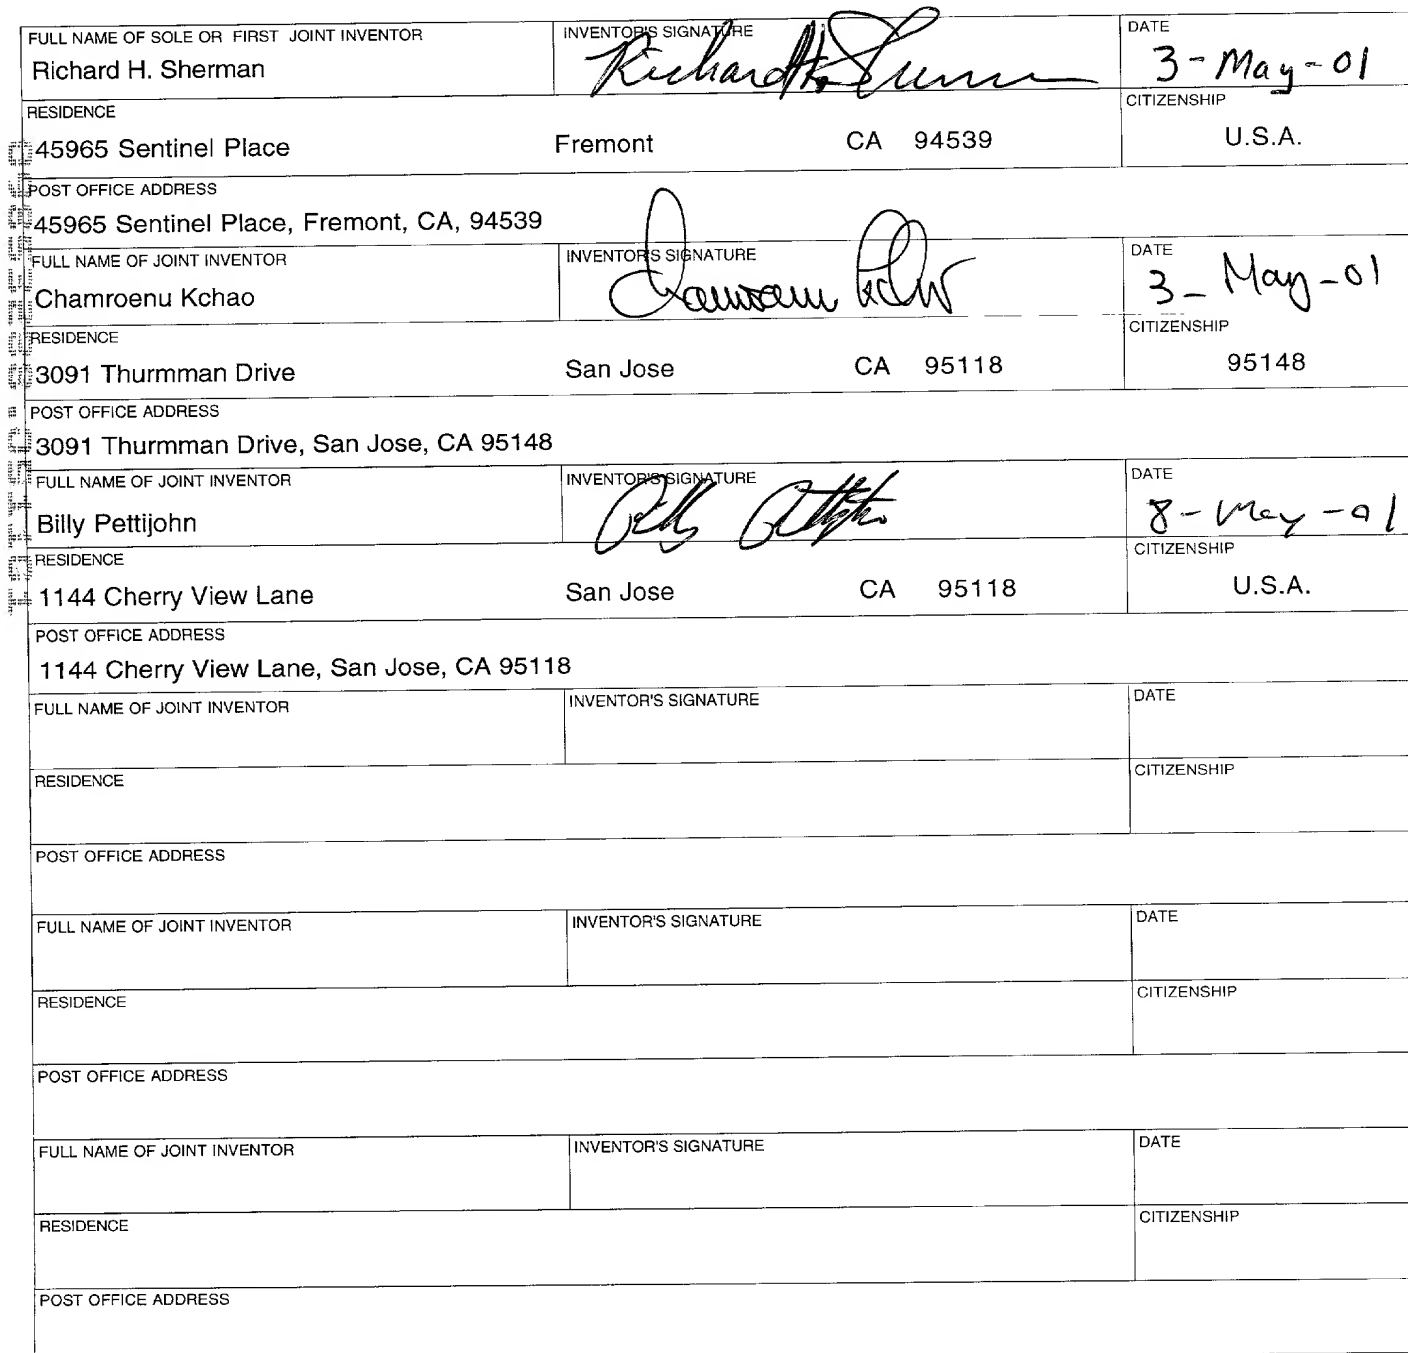 FULL NAME OF SOLE OR FIRST JOINT INVENTOR INVENTOR'S SIGNATURE DATE
Richard H. Sherman Richard H. Sherman 3-May-01
RESIDENCE CITIZENSHIP
45965 Sentinel Place Fremont CA 94539 U.S.A.
POST OFFICE ADDRESS
45965 Sentinel Place, Fremont, CA, 94539
FULL NAME OF JOINT INVENTOR INVENTOR'S SIGNATURE DATE
Chamroenu Kchao 3-May-01
RESIDENCE CITIZENSHIP
3091 Thurmman Drive San Jose CA 95118 95148
POST OFFICE ADDRESS
3091 Thurmman Drive, San Jose, CA 95148
FULL NAME OF JOINT INVENTOR INVENTOR'S SIGNATURE DATE
Billy Pettijohn Billy Pettijohn 8-May-01
RESIDENCE CITIZENSHIP
1144 Cherry View Lane San Jose CA 95118 U.S.A.
POST OFFICE ADDRESS
1144 Cherry View Lane, San Jose, CA 95118
FULL NAME OF JOINT INVENTOR INVENTOR'S SIGNATURE DATE
RESIDENCE CITIZENSHIP
POST OFFICE ADDRESS
FULL NAME OF JOINT INVENTOR INVENTOR'S SIGNATURE DATE
RESIDENCE CITIZENSHIP
POST OFFICE ADDRESS
FULL NAME OF JOINT INVENTOR INVENTOR'S SIGNATURE DATE
RESIDENCE CITIZENSHIP
POST OFFICE ADDRESS